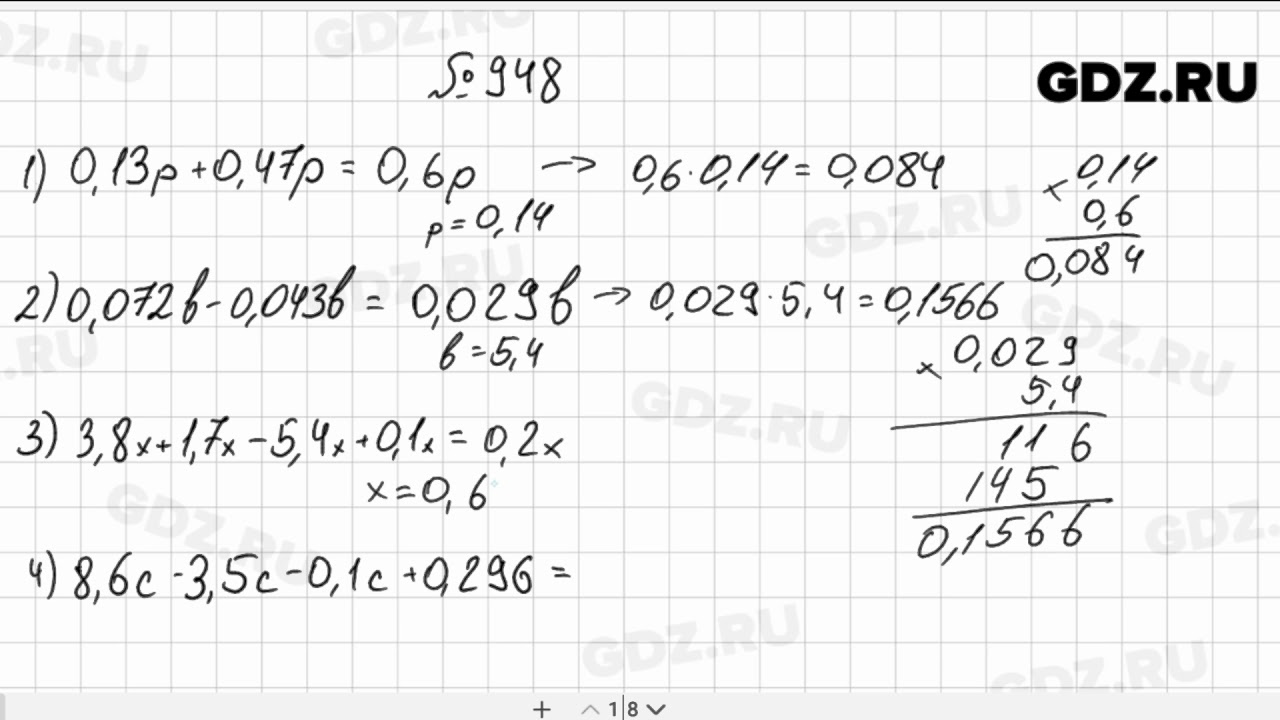 № 948
GDZ.RU
1) 0,13p + 0,47p = 0,6p → 0,6 · 0,14 = 0,084
p = 0,14
× 0,14
0,6
0,084
2) 0,072в - 0,043в = 0,029в → 0,029 · 5,4 = 0,1566
в = 5,4
× 0,029
5,4
116
145
0,1566
3) 3,8x + 1,7x - 5,4x + 0,1x = 0,2x
x = 0,6
4) 8,6c - 3,5c - 0,1c + 0,296 =
GDZ.RU
GDZ.RU
GDZ.RU
GDZ.RU
GDZ.RU
GDZ.RU
GDZ.RU
GDZ.RU
GDZ.RU
+ 1|8